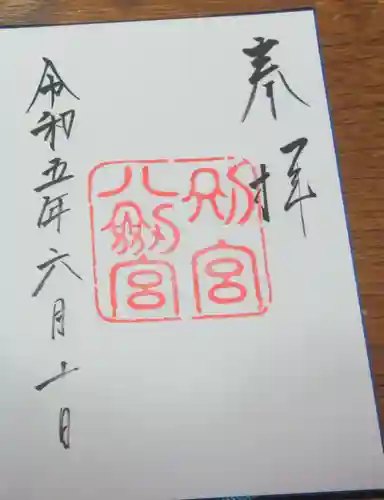 奉拝
別宮
八剱宮
令和五年六月十日